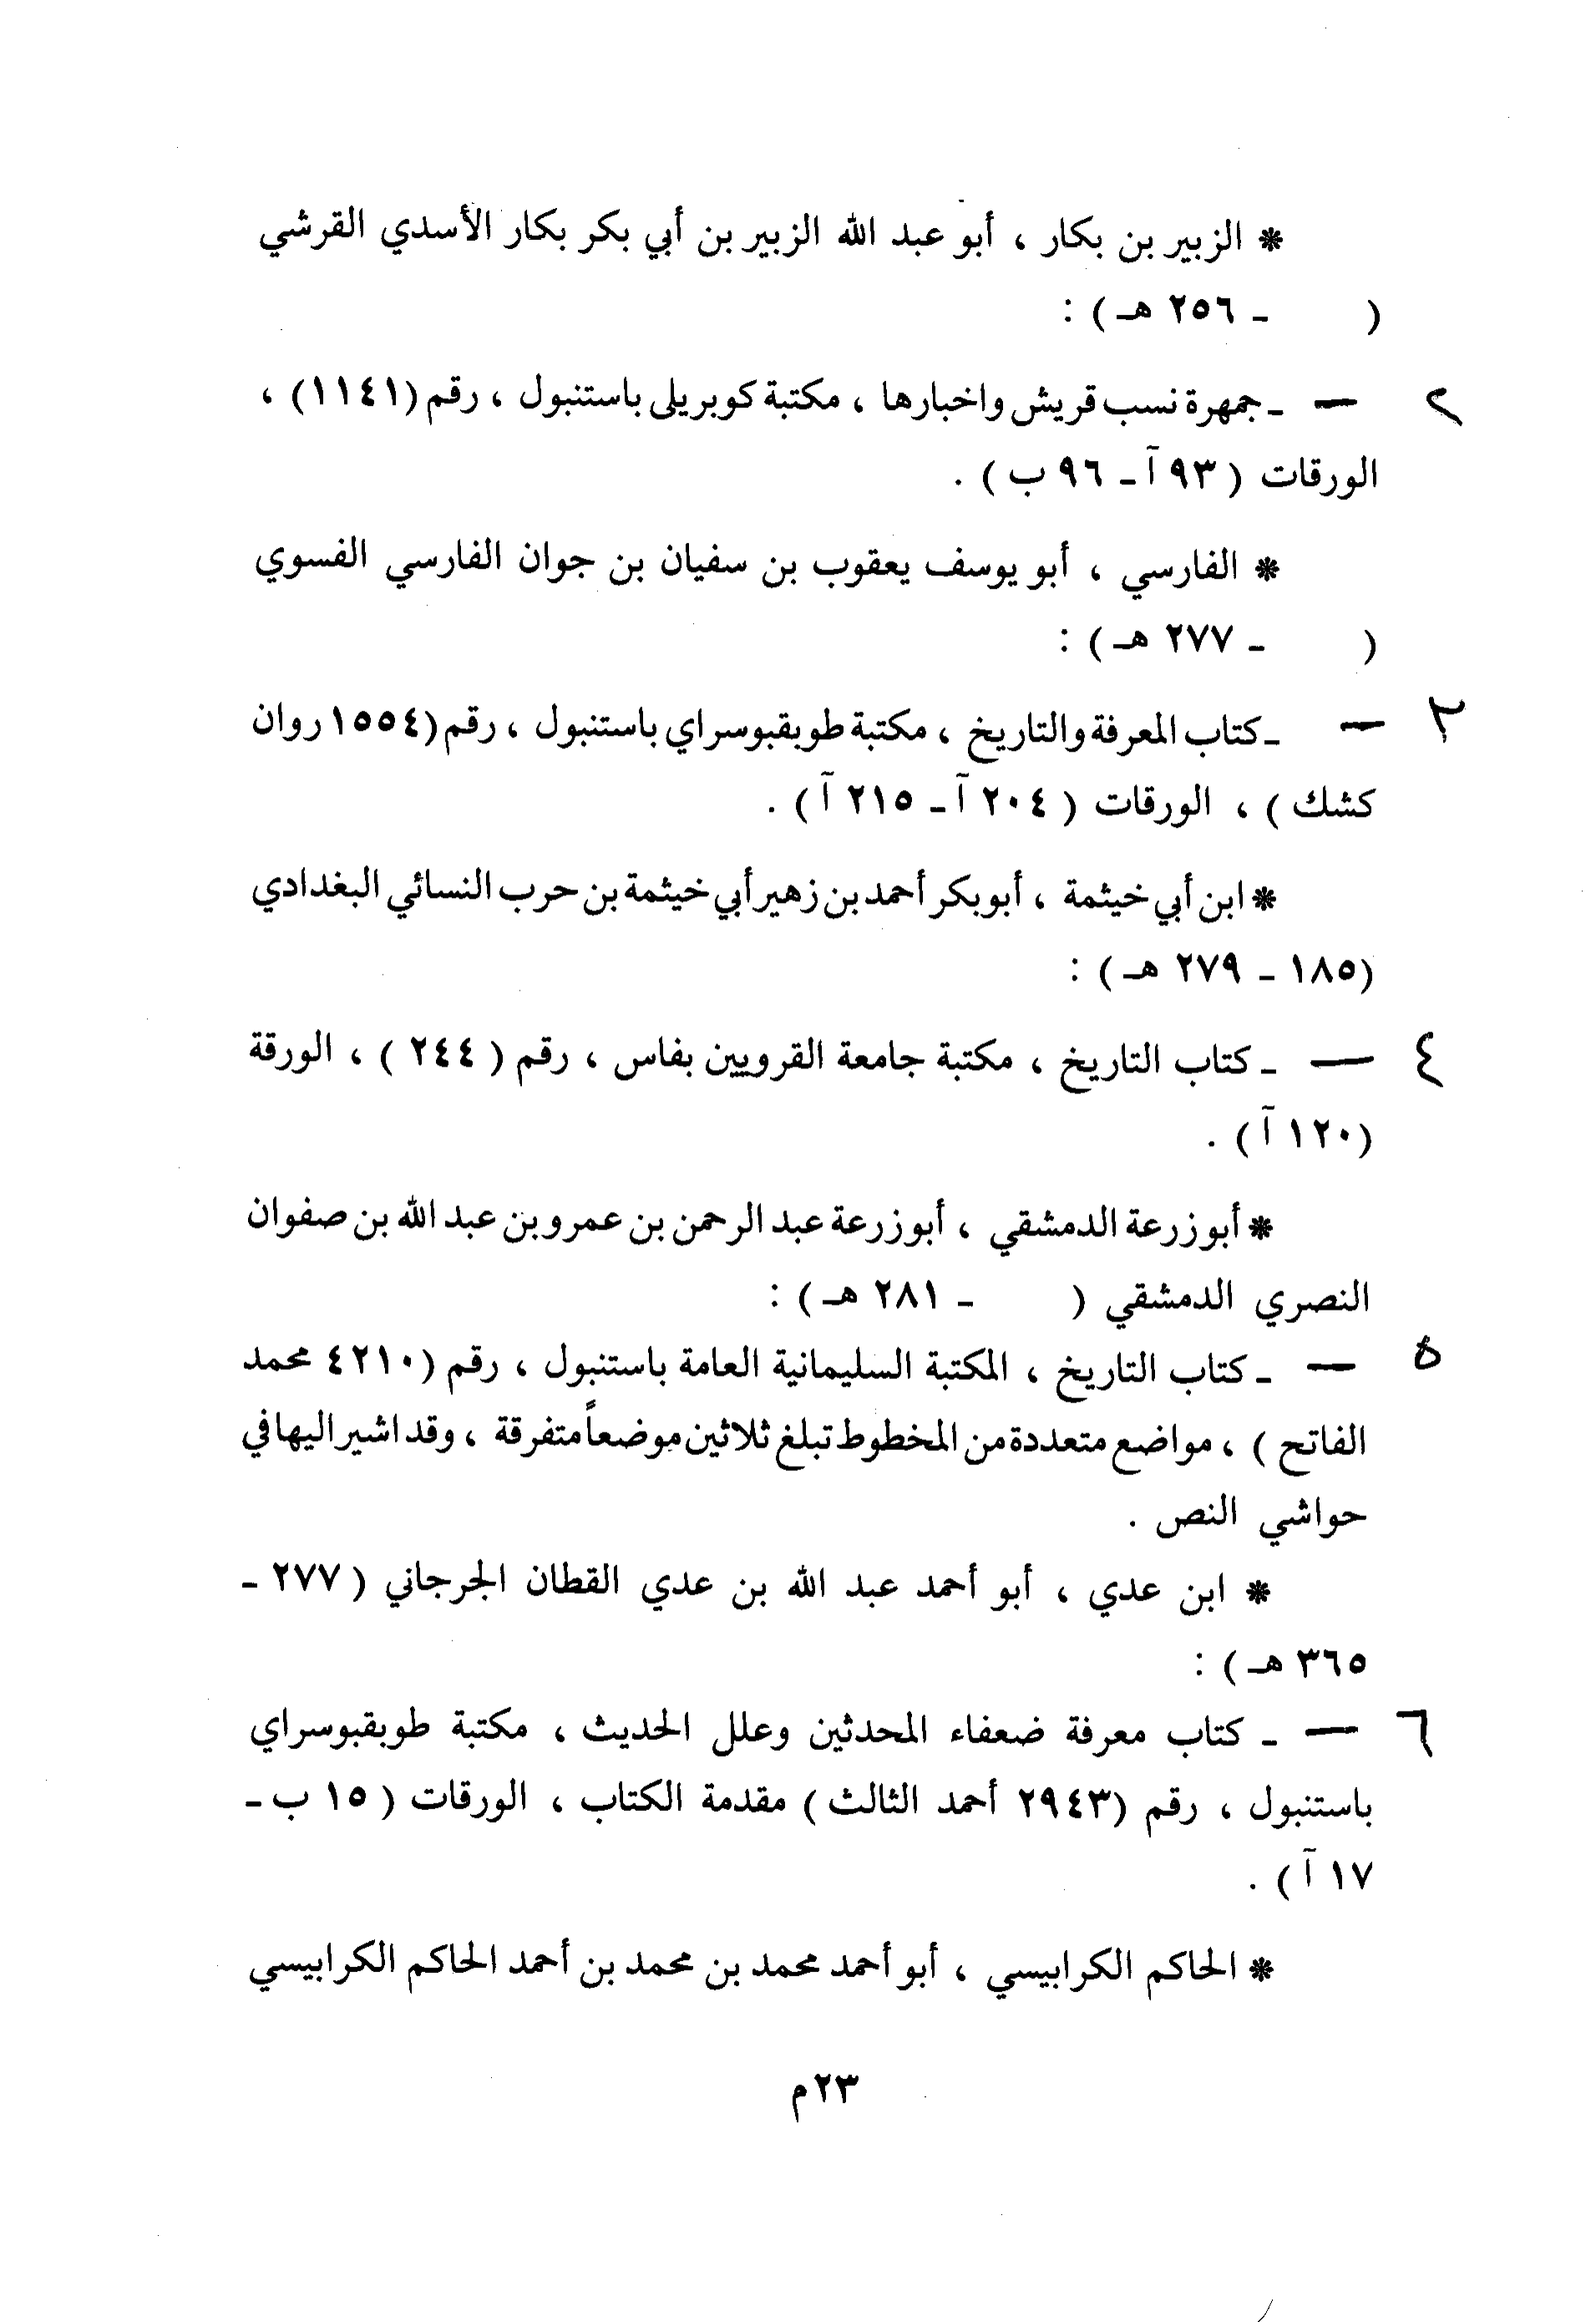 * الزبير بن بكار ، أبو عبد الله الزبير بن أبي بكر بكار الأسدي القرشي
( - ٢٥٦ هـ ) :
٢ — ـ جمهرة نسب قريش واخبارها ، مكتبة كوبريلي باستنبول ، رقم (١١٤١) ،
الورقات ( ٩٣ آ ـ ٩٦ ب ) .
* الفارسي ، أبو يوسف يعقوب بن سفيان بن جوان الفارسي الفسوي
( - ٢٧٧ هـ ) :
٣ — ـ كتاب المعرفة والتاريخ ، مكتبة طوبقبوسراي باستنبول ، رقم (١٥٥٤ روان
كشك ) ، الورقات ( ٢٠٤ آ ـ ٢١٥ آ ) .
* ابن أبي خيثمة ، أبو بكر أحمد بن زهير أبي خيثمة بن حرب النسائي البغدادي
(١٨٥ - ٢٧٩ هـ ) :
٤ — ـ كتاب التاريخ ، مكتبة جامعة القرويين بفاس ، رقم ( ٢٤٤ ) ، الورقة
(١٢٠ آ ) .
* أبو زرعة الدمشقي ، أبو زرعة عبد الرحمن بن عمرو بن عبد الله بن صفوان
النصري الدمشقي ( - ٢٨١ هـ ) :
٥ — ـ كتاب التاريخ ، المكتبة السليمانية العامة باستنبول ، رقم (٤٢١٠ محمد
الفاتح ) ، مواضع متعددة من المخطوط تبلغ ثلاثين موضعاً متفرقة ، وقد اشير اليها في
حواشي النص .
* ابن عدي ، أبو أحمد عبد الله بن عدي القطان الجرجاني ( ٢٧٧ -
٣٦٥ هـ ) :
٦ — ـ كتاب معرفة ضعفاء المحدثين وعلل الحديث ، مكتبة طوبقبوسراي
باستنبول ، رقم (٢٩٤٣ أحمد الثالث ) مقدمة الكتاب ، الورقات ( ١٥ ب ـ
١٧ آ ) .
* الحاكم الكرابيسي ، أبو أحمد محمد بن محمد بن أحمد الحاكم الكرابيسي
٢٣م